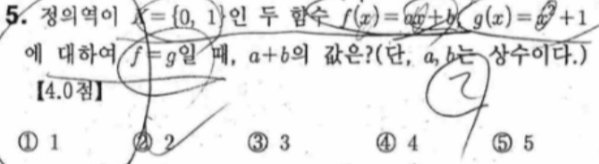 5. 정의역이 X={0, 1}인 두 함수 f(x)=ax+b, g(x)=x²+1
에 대하여 f=g일 때, a+b의 값은?(단, a, b는 상수이다.)
【4.0점】
① 1 ② 2 ③ 3 ④ 4 ⑤ 5
2